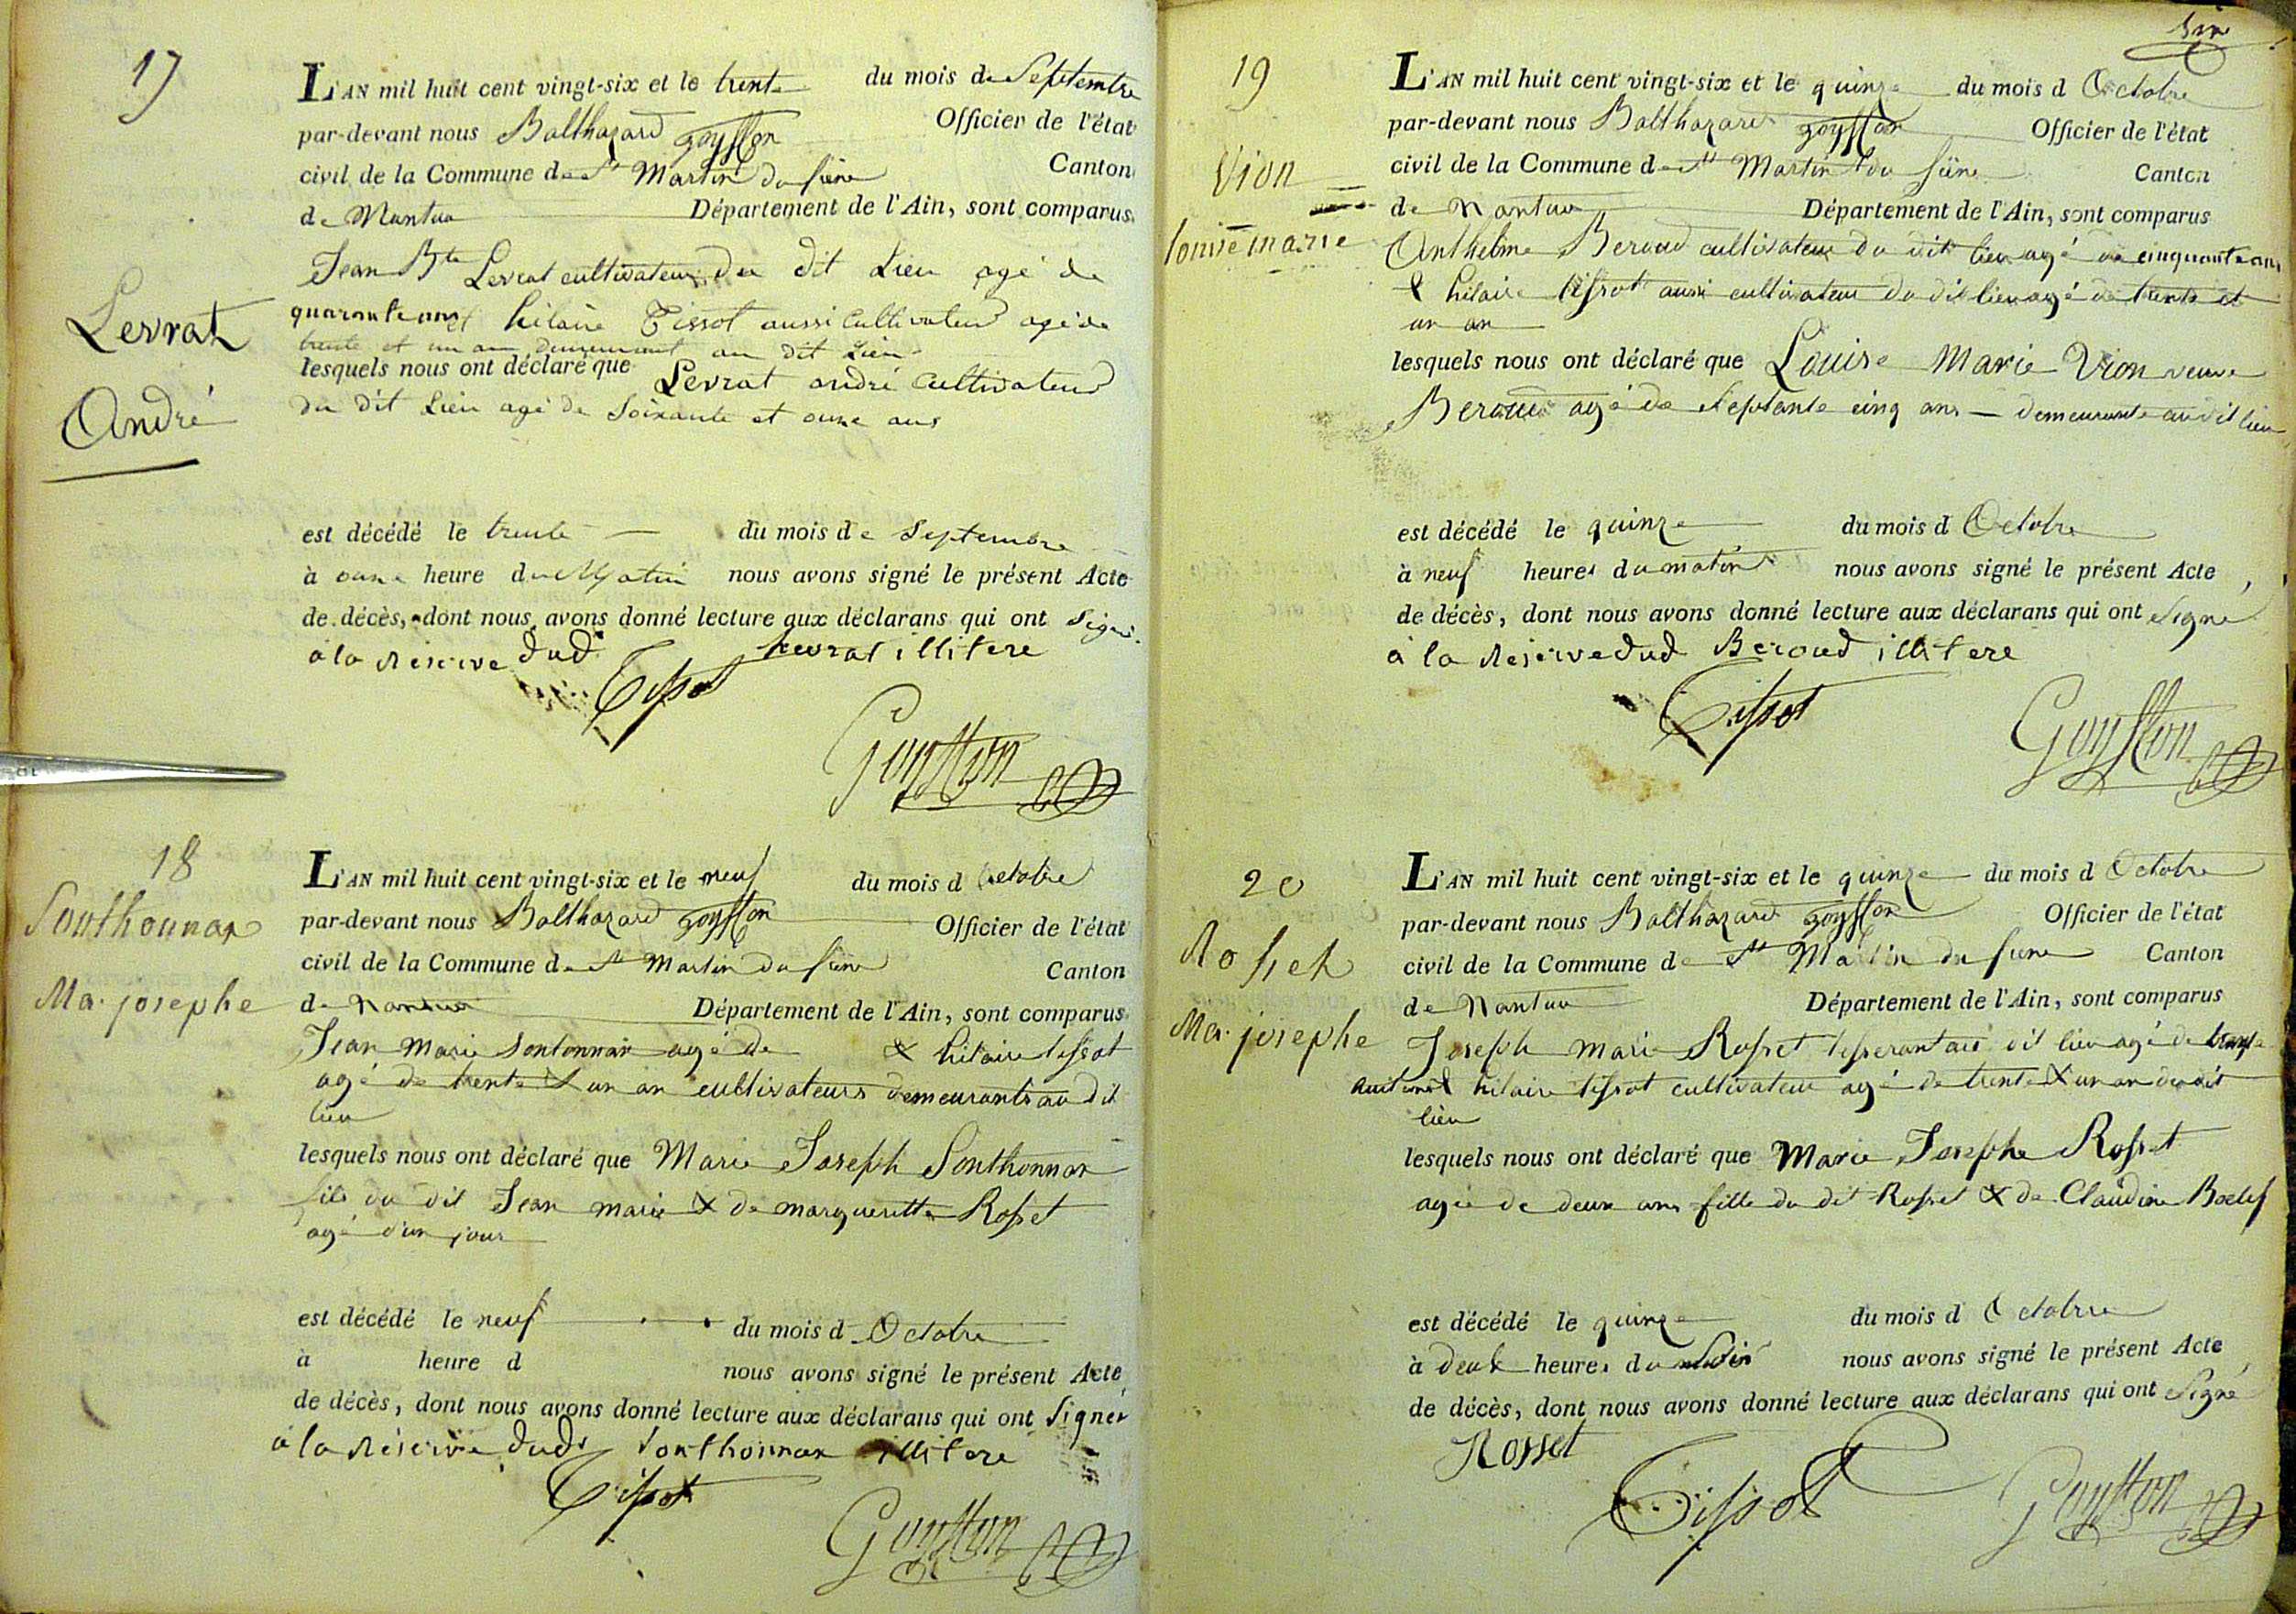 17
Levrat
André
L'AN mil huit cent vingt-six et le trente du mois de Septembre
par-devant nous Balthazard goyffon Officier de l'état
civil de la Commune de St Martin du frêne Canton
de Nantua Département de l'Ain, sont comparus
Jean Bte Levrat cultivateur du dit Lieu agé de
quarante ans et hilaire Tissot aussi Cultivateur agé de
trente et un an demeurant au dit Lieu
lesquels nous ont déclaré que Levrat andré Cultivateur
du dit Lieu agé de Soixante et onze ans
est décédé le trente du mois de Septembre
à onze heure du Matin nous avons signé le présent Acte
de décès, dont nous avons donné lecture aux déclarans qui ont Signé
à la Réserve dud Levrat illitere
Tissot
Goyffon
18
Sonthonnax
Ma. josephe
L'AN mil huit cent vingt-six et le neuf du mois d Octobre
par-devant nous Balthazard goyffon Officier de l'état
civil de la Commune de St Martin du frêne Canton
de Nantua Département de l'Ain, sont comparus
Jean Marie Sontonnax agé de & hilaire tissot
agé de trente & un an cultivateurs demeurants au dit
lieu
lesquels nous ont déclaré que Marie Joseph Sonthonnax
fils du dit Jean marie & de margueritte Rosset
agé d'un jour
est décédé le neuf du mois d Octobre
à heure d nous avons signé le présent Acte
de décès, dont nous avons donné lecture aux déclarans qui ont Signer
à la Réserve dudt Sonthonnax illitere
Tissot
Goyffon
19
Vion
louise marie
L'AN mil huit cent vingt-six et le quinze du mois d Octobre
par-devant nous Balthazard goyffon Officier de l'état
civil de la Commune de St Martin du frêne Canton
de Nantua Département de l'Ain, sont comparus
Anthelme Beroud cultivateur du dit lieu agé de cinquante ans
& hilaire tissot aussi cultivateur du dit lieu agé de trente et
un an
lesquels nous ont déclaré que Louise Marie Vion veuve
Beroud agé de Septante cinq ans demeurante au dit lieu
est décédé le quinze du mois d Octobre
à neuf heures du matin nous avons signé le présent Acte
de décès, dont nous avons donné lecture aux déclarans qui ont Signé
à la Réserve dud Beroud illitere
Tissot
Goyffon
20
Rosset
Ma. josephe
L'AN mil huit cent vingt-six et le quinze du mois d Octobre
par-devant nous Balthazard goyffon Officier de l'état
civil de la Commune de St Martin du frene Canton
de Nantua Département de l'Ain, sont comparus
Joseph marie Rosset tisserant au dit lieu agé de trente
huit ans & hilaire tissot cultivateur agé de trente & un an du dit
lieu
lesquels nous ont déclaré que Marie Josephe Rosset
agée de deux ans fille du dit Rosset & de Claudine
est décédé le quinze du mois d Octobre
à deux heures du Soir nous avons signé le présent Acte
de décès, dont nous avons donné lecture aux déclarans qui ont Signé
Rosset
Tissot
Goyffon